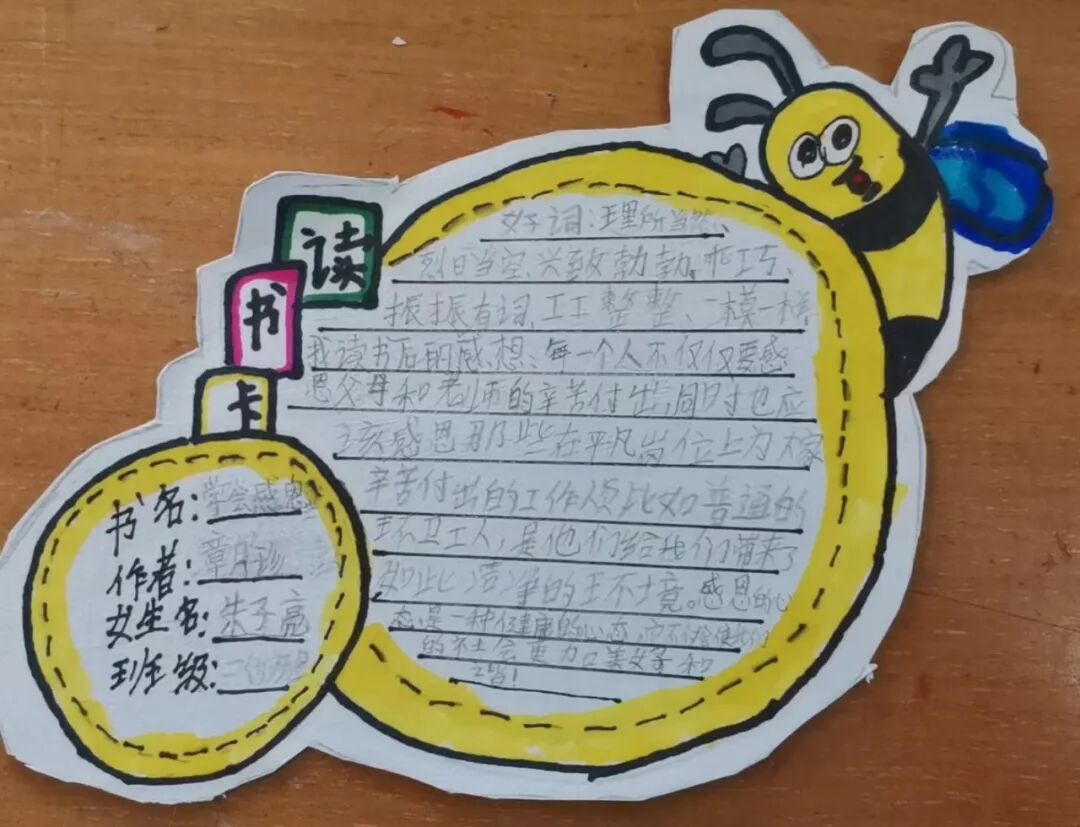 读
书
卡
书名:学会感恩
作者:章月珍
姓名:朱子亮
班级:二
好词:理所当然、
烈日当空、兴致勃勃、乖巧、
振振有词、工工整整、一模一样
我读书后的感想:每一个人不仅仅要感
恩父母和老师的辛苦付出,同时也应
该感恩那些在平凡岗位上为大家
辛苦付出的工作人员比如普通的
环卫工人,是他们给我们带来了
如此洁净的环境。感恩的心
态是一种健康的心态,它不仅会使我们
的社会更加美好和
谐!